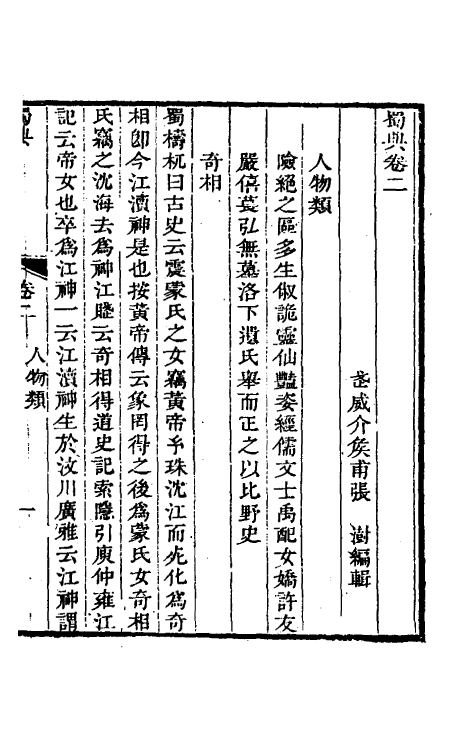 蜀典卷二
武威介矦甫張 澍編輯
人物類
險絕之區多生俶詭靈仙豔姿經儒文士禹配女嬌許友
嚴僖萇弘無墓洛下遺氏舉而正之以比野史
奇相
蜀檮杌曰古史云震蒙氏之女竊黃帝玄珠沈江而死化爲奇
相卽今江瀆神是也按黃帝傳云象罔得之後爲蒙氏女奇相
氏竊之沈海去爲神江賦云奇相得道史記索隱引庾仲雍江
記云帝女也卒爲江神一云江瀆神生於汶川廣雅云江神謂
蜀典
卷二
人物類
一